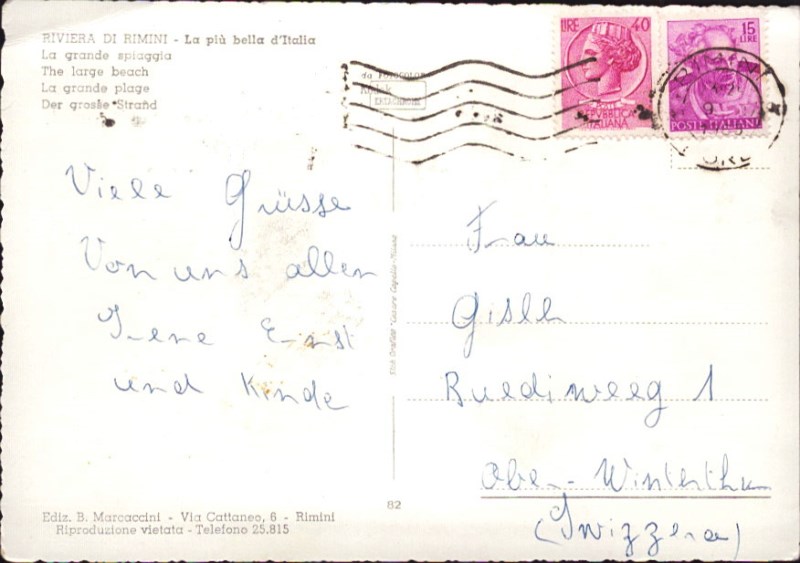 RIVIERA DI RIMINI - La più bella d'Italia
La grande spiaggia
The large beach
La grande plage
Der grosse Strand
da FOTOCOLOR
LIRE 40
POSTE
REPVBBLICA
ITALIANA
15
LIRE
POSTE ITALIANE
Viele Grüsse
Von uns allen
Irene Ernst
und Kinde
Frau
Gisler
Ruediweeg 1
Ober-Winterthur
(Swizzera)
82
Ediz. B. Marcaccini - Via Cattaneo, 6 - Rimini
Riproduzione vietata - Telefono 25.815